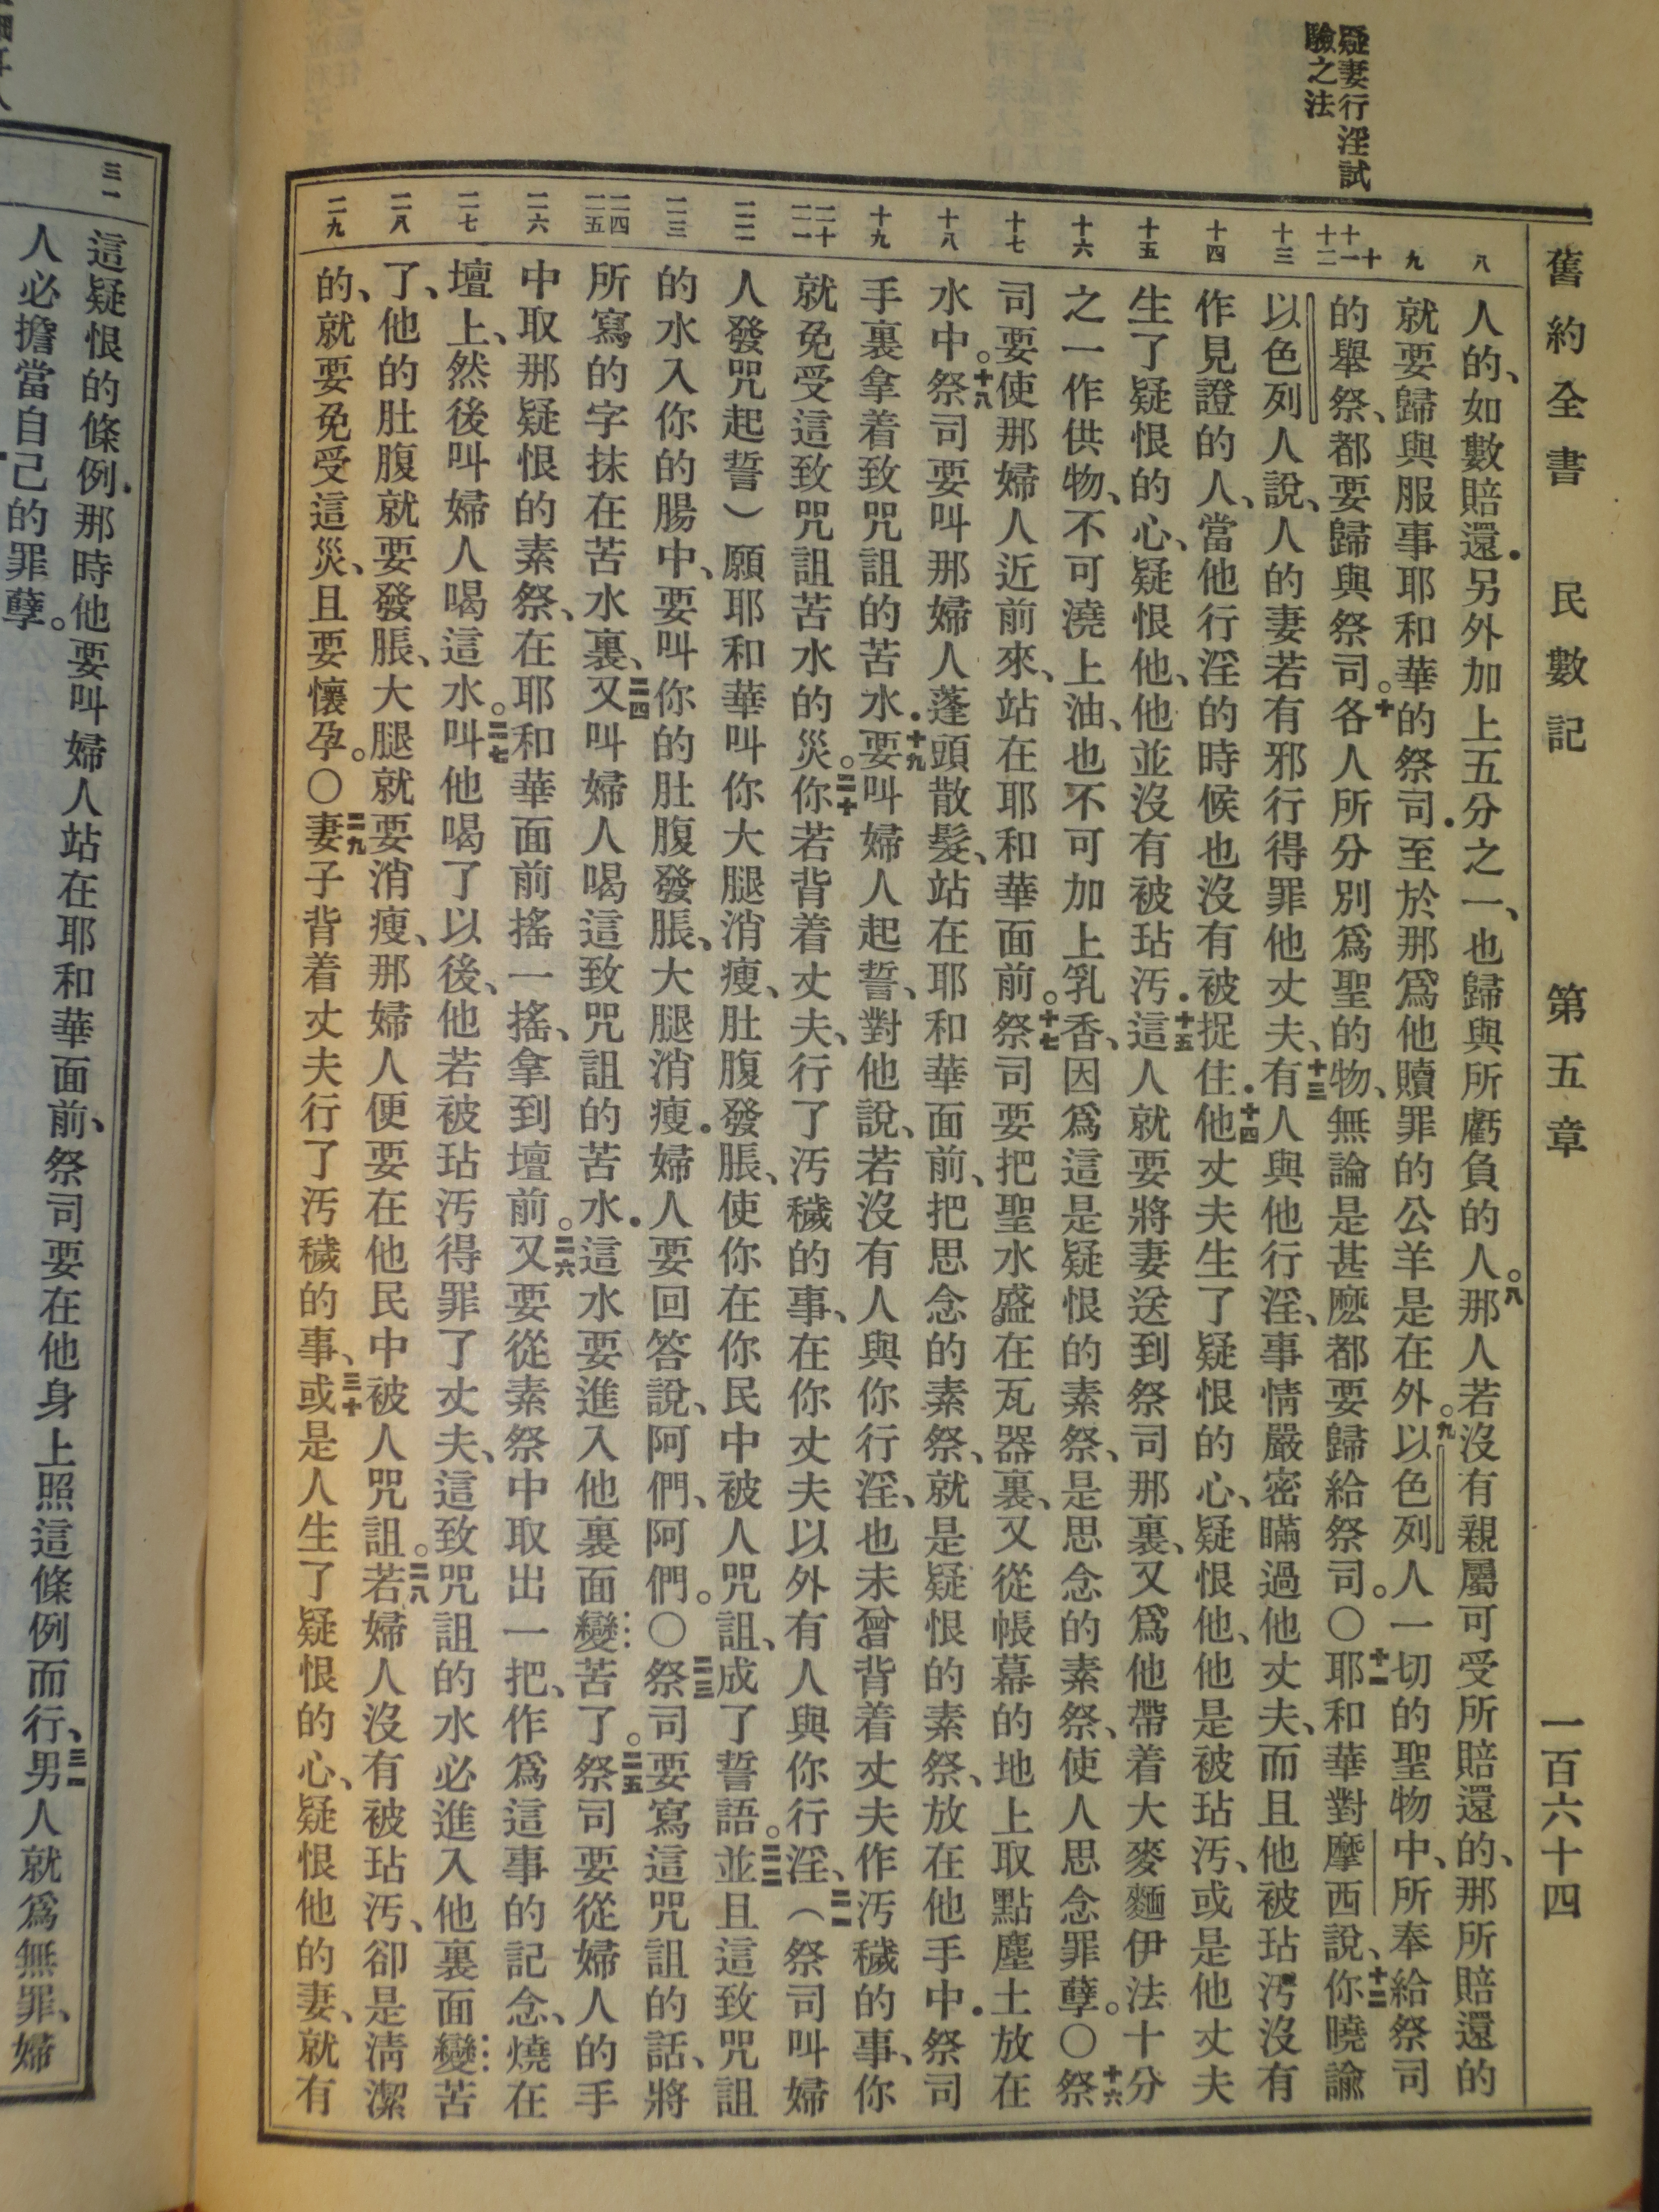 舊約全書 民數記 第五章 一百六十四
疑妻行淫試
驗之法
八
九
十
十一
十二
十三
十四
十五
十六
十七
十八
十九
二十
二一
二二
二三
二四
二五
二六
二七
二八
二九
人的、如數賠還．另外加上五分之一、也歸與所虧負的人。八那人若沒有親屬可受所賠還的、那所賠還的
就要歸與服事耶和華的祭司．至於那爲他贖罪的公羊是在外。九以色列人一切的聖物中、所奉給祭司
的舉祭、都要歸與祭司。十各人所分別爲聖的物、無論是甚麼都要歸給祭司。〇十一耶和華對摩西說、十二你曉諭
以色列人說、人的妻若有邪行得罪他丈夫、十三有人與他行淫、事情嚴密瞞過他丈夫、而且他被玷汚沒有
作見證的人、當他行淫的時候也沒有被捉住．十四他丈夫生了疑恨的心、疑恨他、他是被玷汚、或是他丈夫
生了疑恨的心、疑恨他、他並沒有被玷汚．十五這人就要將妻送到祭司那裏、又爲他帶着大麥麵伊法十分
之一作供物、不可澆上油、也不可加上乳香、因爲這是疑恨的素祭、是思念的素祭、使人思念罪孽。〇十六祭
司要使那婦人近前來、站在耶和華面前。十七祭司要把聖水盛在瓦器裏、又從帳幕的地上取點塵土放在
水中。十八祭司要叫那婦人蓬頭散髮、站在耶和華面前、把思念的素祭、就是疑恨的素祭、放在他手中．祭司
手裏拿着致咒詛的苦水．十九要叫婦人起誓、對他說、若沒有人與你行淫、也未曾背着丈夫作汚穢的事、你
就免受這致咒詛苦水的災。二十你若背着丈夫、行了汚穢的事、在你丈夫以外有人與你行淫、二一（祭司叫婦
人發咒起誓）願耶和華叫你大腿消瘦、肚腹發脹、使你在你民中被人咒詛、成了誓語。二二並且這致咒詛
的水入你的腸中、要叫你的肚腹發脹、大腿消瘦．婦人要回答說、阿們、阿們。〇二三祭司要寫這咒詛的話、將
所寫的字抹在苦水裏、二四又叫婦人喝這致咒詛的苦水．這水要進入他裏面變苦了。二五祭司要從婦人的手
中取那疑恨的素祭、在耶和華面前搖一搖、拿到壇前。二六又要從素祭中取出一把、作爲這事的記念、燒在
壇上、然後叫婦人喝這水。二七叫他喝了以後、他若被玷汚得罪了丈夫、這致咒詛的水必進入他裏面變苦
了、他的肚腹就要發脹、大腿就要消瘦、那婦人便要在他民中被人咒詛。二八若婦人沒有被玷汚、卻是清潔
的、就要免受這災、且要懷孕。〇二九妻子背着丈夫行了汚穢的事、三十或是人生了疑恨的心、疑恨他的妻、就有
三一
這疑恨的條例．那時他要叫婦人站在耶和華面前、祭司要在他身上照這條例而行、三一男人就爲無罪、婦
人必擔當自己的罪孽。